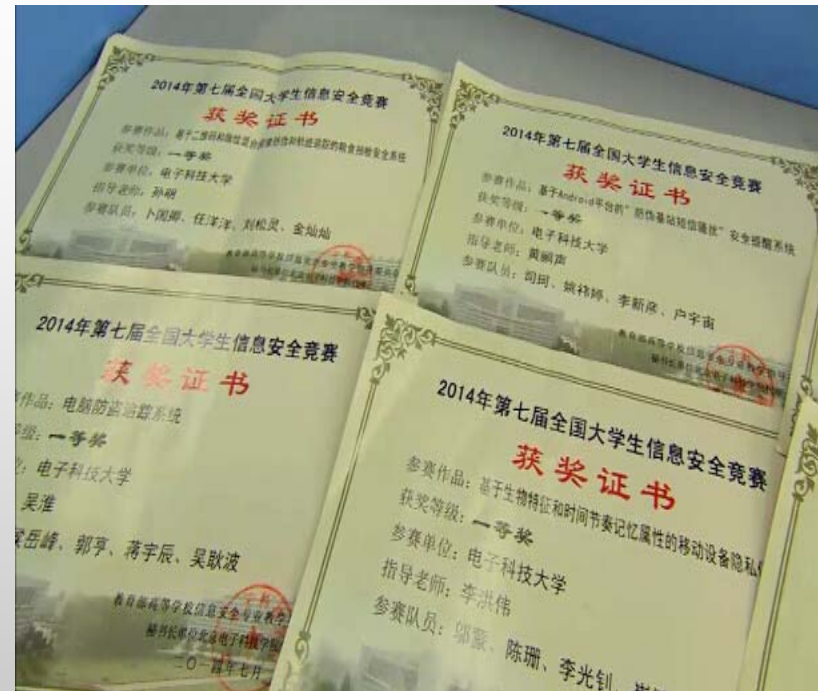 2014年第七届全国大学生信息安全竞赛
获奖证书
参赛作品：基于二维码和隐性
追踪的粮食
安全系统
获奖等级：一等奖
参赛单位：电子科技大学
指导老师：孙明
参赛队员：卜国卿、任洋洋、刘松灵、金灿灿
2014年第七届全国大学生信息安全竞赛
获奖证书
参赛作品：基于Android平台的"防伪基站短信骚扰"安全提醒系统
获奖等级：一等奖
参赛单位：电子科技大学
指导老师：黄鹂声
参赛队员：闫珂、姚祎婷、李新彦、卢宇宙
2014年第七届全国大学生信息安全竞赛
获奖证书
作品：电脑防盗追踪系统
级：一等奖
电子科技大学
吴淮
岳峰、郭亨、蒋宇辰、吴耿波
教育部高等学校信息安全专业教学
秘书长单位北京电子科技学院
二〇一四年七月
2014年第七届全国大学生信息安全竞赛
获奖证书
参赛作品：基于生物特征和时间节奏记忆属性的移动设备隐私
获奖等级：一等奖
参赛单位：电子科技大学
指导老师：李洪伟
参赛队员：邬豪、陈珊、李光钊